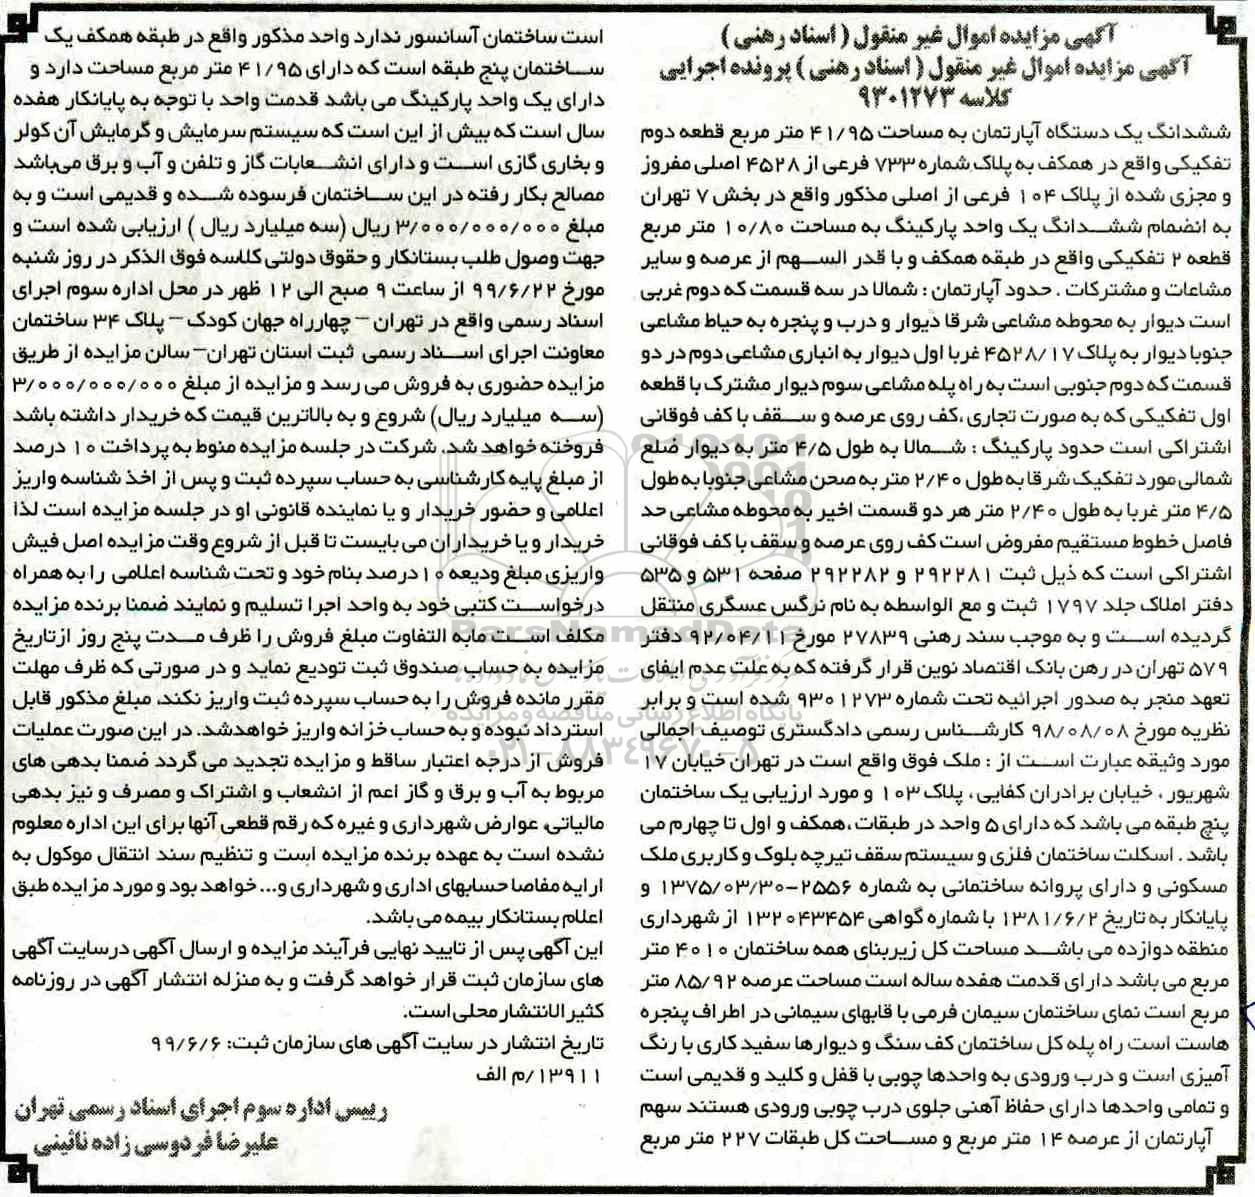 آگهی مزایده اموال غیر منقول ( اسناد رهنی )
آگهی مزایده اموال غیر منقول ( اسناد رهنی ) پرونده اجرایی
کلاسه ۹۳۰۱۲۷۳
ششدانگ یک دستگاه آپارتمان به مساحت ۴۱/۹۵ متر مربع قطعه دوم
تفکیکی واقع در همکف به پلاک شماره ۷۳۳ فرعی از ۴۵۲۸ اصلی مفروز
و مجزی شده از پلاک ۱۰۴ فرعی از اصلی مذکور واقع در بخش ۷ تهران
به انضمام ششدانگ یک واحد پارکینگ به مساحت ۱۰/۸۰ متر مربع
قطعه ۲ تفکیکی واقع در طبقه همکف و با قدر السهم از عرصه و سایر
مشاعات و مشترکات . حدود آپارتمان : شمالا در سه قسمت که دوم غربی
است دیوار به محوطه مشاعی شرقا دیوار و درب و پنجره به حیاط مشاعی
جنوبا دیوار به پلاک ۴۵۲۸/۱۷ غربا اول دیوار به انباری مشاعی دوم در دو
قسمت که دوم جنوبی است به راه پله مشاعی سوم دیوار مشترک با قطعه
اول تفکیکی که به صورت تجاری ،کف روی عرصه و سقف با کف فوقانی
اشتراکی است حدود پارکینگ : شمالا به طول ۴/۵ متر به دیوار ضلع
شمالی مورد تفکیک شرقا به طول ۲/۴۰ متر به صحن مشاعی جنوبا به طول
۴/۵ متر غربا به طول ۲/۴۰ متر هر دو قسمت اخیر به محوطه مشاعی حد
فاصل خطوط مستقیم مفروض است کف روی عرصه و سقف با کف فوقانی
اشتراکی است که ذیل ثبت ۲۹۲۲۸۱ و ۲۹۲۲۸۲ صفحه ۵۳۱ و ۵۳۵
دفتر املاک جلد ۱۷۹۷ ثبت و مع الواسطه به نام نرگس عسگری منتقل
گردیده است و به موجب سند رهنی ۲۷۸۳۹ مورخ ۹۲/۰۴/۱۱ دفتر
۵۷۹ تهران در رهن بانک اقتصاد نوین قرار گرفته که به علت عدم ایفای
تعهد منجر به صدور اجرائیه تحت شماره ۹۳۰۱۲۷۳ شده است و برابر
نظریه مورخ ۹۸/۰۸/۰۸ کارشناس رسمی دادگستری توصیف اجمالی
مورد وثیقه عبارت است از : ملک فوق واقع است در تهران خیابان ۱۷
شهریور ، خیابان برادران کفایی ، پلاک ۱۰۳ و مورد ارزیابی یک ساختمان
پنج طبقه می باشد که دارای ۵ واحد در طبقات ،همکف و اول تا چهارم می
باشد . اسکلت ساختمان فلزی و سیستم سقف تیرچه بلوک و کاربری ملک
مسکونی و دارای پروانه ساختمانی به شماره ۲۵۵۶-۱۳۷۵/۰۳/۳۰ و
پایانکار به تاریخ ۱۳۸۱/۶/۲ با شماره گواهی ۱۳۲۰۴۳۴۵۴ از شهرداری
منطقه دوازده می باشد مساحت کل زیربنای همه ساختمان ۴۰۱۰ متر
مربع می باشد دارای قدمت هفده ساله است مساحت عرصه ۸۵/۹۲ متر
مربع است نمای ساختمان سیمان فرمی با قابهای سیمانی در اطراف پنجره
هاست است راه پله کل ساختمان کف سنگ و دیوارها سفید کاری با رنگ
آمیزی است و درب ورودی به واحدها چوبی با قفل و کلید و قدیمی است
و تمامی واحدها دارای حفاظ آهنی جلوی درب چوبی ورودی هستند سهم
آپارتمان از عرصه ۱۴ متر مربع و مساحت کل طبقات ۲۲۷ متر مربع
است ساختمان آسانسور ندارد واحد مذکور واقع در طبقه همکف یک
ساختمان پنج طبقه است که دارای ۴۱/۹۵ متر مربع مساحت دارد و
دارای یک واحد پارکینگ می باشد قدمت واحد با توجه به پایانکار هفده
سال است که بیش از این است که سیستم سرمایش و گرمایش آن کولر
و بخاری گازی است و دارای انشعابات گاز و تلفن و آب و برق می‌باشد
مصالح بکار رفته در این ساختمان فرسوده شده و قدیمی است و به
مبلغ ۳/۰۰۰/۰۰۰/۰۰۰ ریال (سه میلیارد ریال ) ارزیابی شده است و
جهت وصول طلب بستانکار و حقوق دولتی کلاسه فوق الذکر در روز شنبه
مورخ ۹۹/۶/۲۲ از ساعت ۹ صبح الی ۱۲ ظهر در محل اداره سوم اجرای
اسناد رسمی واقع در تهران – چهارراه جهان کودک – پلاک ۳۴ ساختمان
معاونت اجرای اسناد رسمی ثبت استان تهران– سالن مزایده از طریق
مزایده حضوری به فروش می رسد و مزایده از مبلغ ۳/۰۰۰/۰۰۰/۰۰۰
(سه میلیارد ریال) شروع و به بالاترین قیمت که خریدار داشته باشد
فروخته خواهد شد. شرکت در جلسه مزایده منوط به پرداخت ۱۰ درصد
از مبلغ پایه کارشناسی به حساب سپرده ثبت و پس از اخذ شناسه واریز
اعلامی و حضور خریدار و یا نماینده قانونی او در جلسه مزایده است لذا
خریدار و یا خریداران می بایست تا قبل از شروع وقت مزایده اصل فیش
واریزی مبلغ ودیعه ۱۰ درصد بنام خود و تحت شناسه اعلامی را به همراه
درخواست کتبی خود به واحد اجرا تسلیم و نمایند ضمنا برنده مزایده
مکلف است مابه التفاوت مبلغ فروش را ظرف مدت پنج روز از تاریخ
مزایده به حساب صندوق ثبت تودیع نماید و در صورتی که ظرف مهلت
مقرر مانده فروش را به حساب سپرده ثبت واریز نکند، مبلغ مذکور قابل
استرداد نبوده و به حساب خزانه واریز خواهدشد. در این صورت عملیات
فروش از درجه اعتبار ساقط و مزایده تجدید می گردد ضمنا بدهی های
مربوط به آب و برق و گاز اعم از انشعاب و اشتراک و مصرف و نیز بدهی
مالیاتی، عوارض شهرداری و غیره که رقم قطعی آنها برای این اداره معلوم
نشده است به عهده برنده مزایده است و تنظیم سند انتقال موکول به
ارایه مفاصا حسابهای اداری و شهرداری و... خواهد بود و مورد مزایده طبق
اعلام بستانکار بیمه می باشد.
این آگهی پس از تایید نهایی فرآیند مزایده و ارسال آگهی درسایت آگهی
های سازمان ثبت قرار خواهد گرفت و به منزله انتشار آگهی در روزنامه
کثیرالانتشار محلی است.
تاریخ انتشار در سایت آگهی های سازمان ثبت: ۹۹/۶/۶
۱۳۹۱۱/م الف
رییس اداره سوم اجرای اسناد رسمی تهران
علیرضا فردوسی زاده نائینی
ParsNamadData
پایگاه اطلاع رسانی مناقصه و مزایده
۰۲۱-۸۸۳۴۹۶۷۰-۵